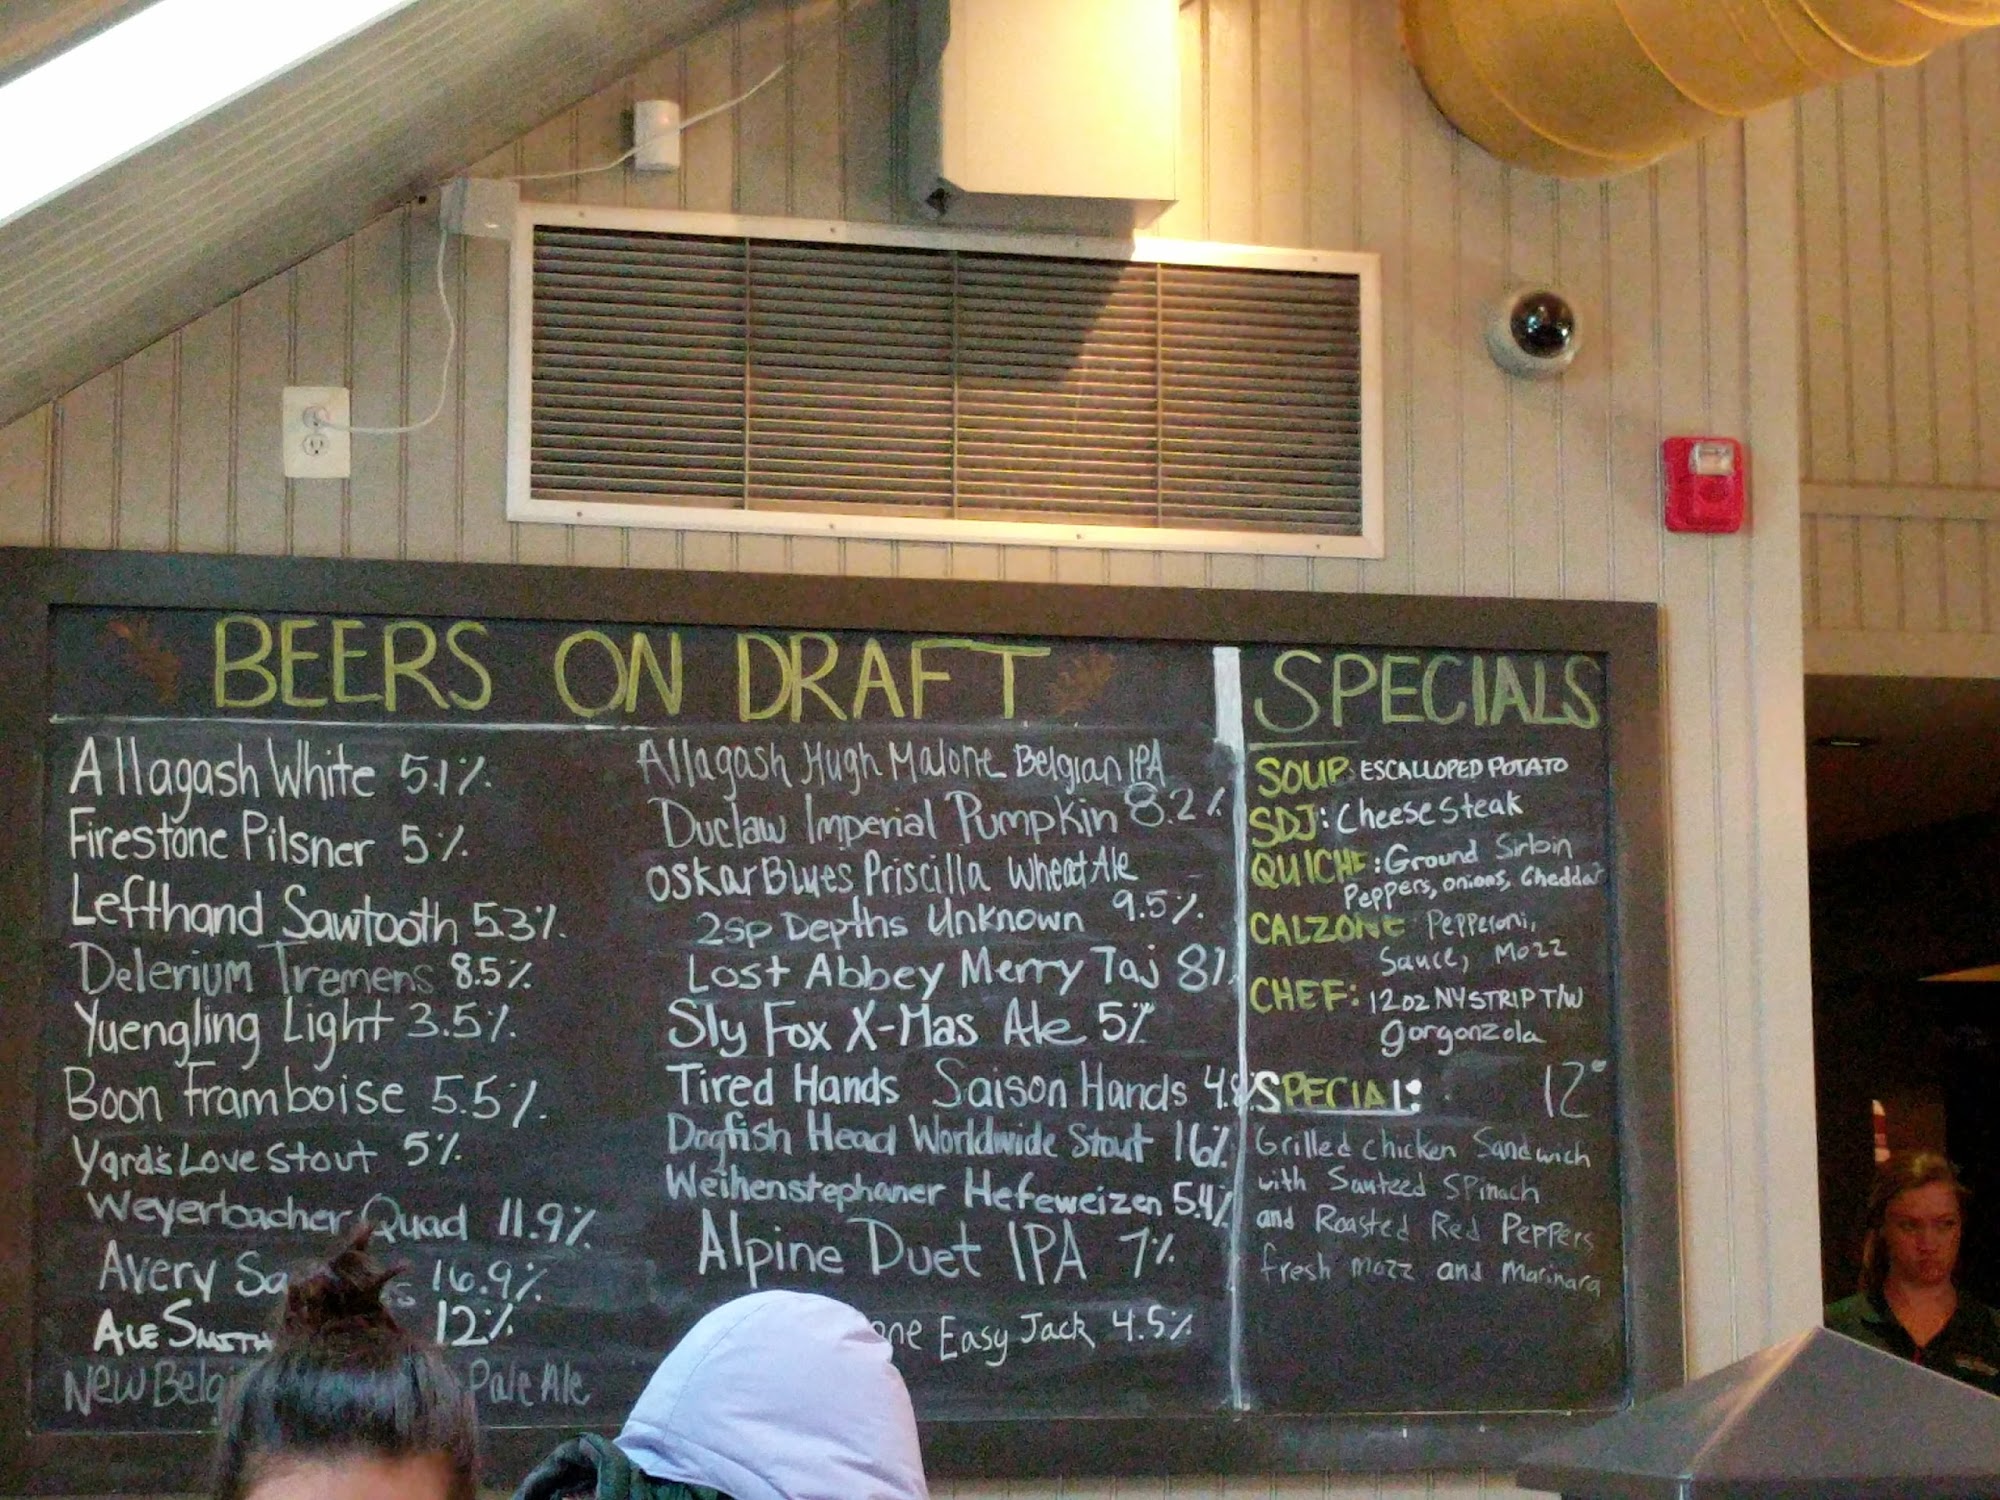 BEERS ON DRAFT
Allagash White 5.1%
Firestone Pilsner 5%
Lefthand Sawtooth 5.3%
Delerium Tremens 8.5%
Yuengling Light 3.5%
Boon Framboise 5.5%
Yards Love Stout 5%
Weyerbacher Quad 11.9%
Avery 16.9%
ALE SMITH 12%
New Pale Ale
Allagash Hugh Malone Belgian IPA
Duclaw Imperial Pumpkin 8.2%
Oskar Blues Priscilla Wheat Ale
2sp Depths Unknown 9.5%
Lost Abbey Merry Taj 8%
Sly Fox X-Mas Ale 5%
Tired Hands Saison Hands
Dogfish Head Worldwide Stout 16%
Weihenstephaner Hefeweizen 5.4%
Alpine Duet IPA 7%
Easy Jack 4.5%
SPECIALS
SOUP: ESCALLOPED POTATO
SDJ: Cheese Steak
QUICHE: Ground Sirloin
Peppers, onions, Cheddar
CALZONE Pepperoni,
Sauce, Mozz
CHEF: 12oz NY STRIP T/W
gorgonzola
SPECIAL: 12
Grilled chicken Sandwich
with Sauteed Spinach
and Roasted Red Peppers
fresh mozz and Marinara